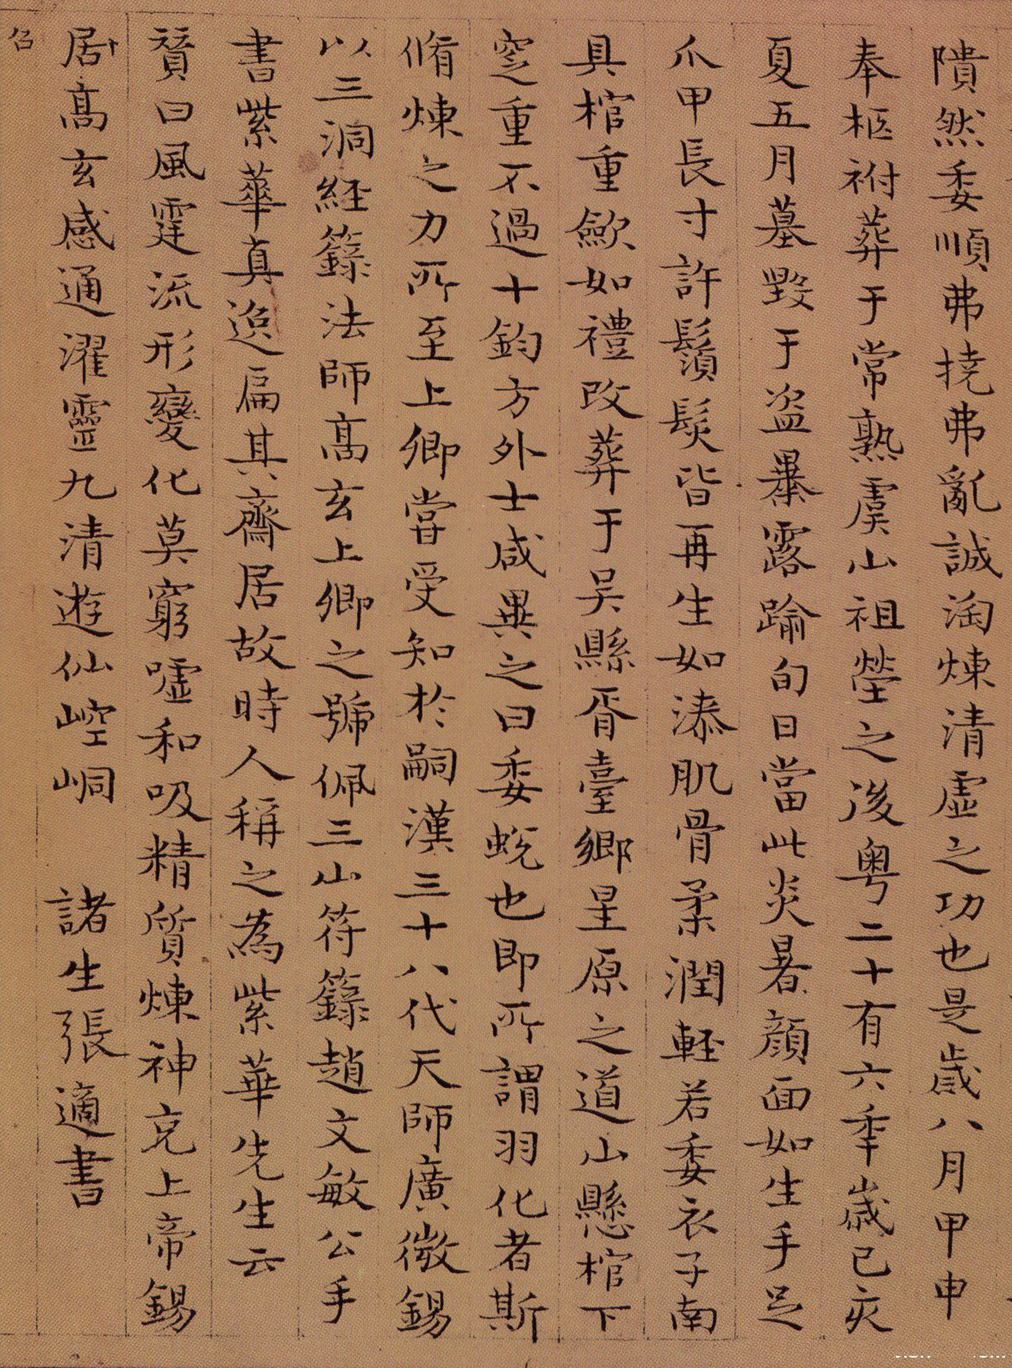 隤然委順弗撓弗亂誠淘煉清虛之功也是歲八月甲申
奉柩祔葬于常熟虞山祖塋之後粵二十有六季歲己亥
夏五月墓毀于盗暴露踰旬日當此炎暑顏面如生手足
爪甲長寸許鬚髮皆再生如漆肌骨柔潤軽若委衣子南
具棺重歛如禮改葬于吴縣胥臺鄉星原之道山懸棺下
窆重不過十鈞方外士咸異之曰委蛻也即所謂羽化者斯
脩煉之力所至上卿嘗受知於嗣漢三十八代天師廣微錫
以三洞経籙法師髙玄上卿之號佩三山符籙趙文敏公手
書紫華真逸扁其齋居故時人稱之為紫華先生云
賛曰風霆流形變化莫窮嘘和吸精質煉神克上帝錫
居髙玄感通濯靈九清遊仙崆峒　諸生張適書
卜
召